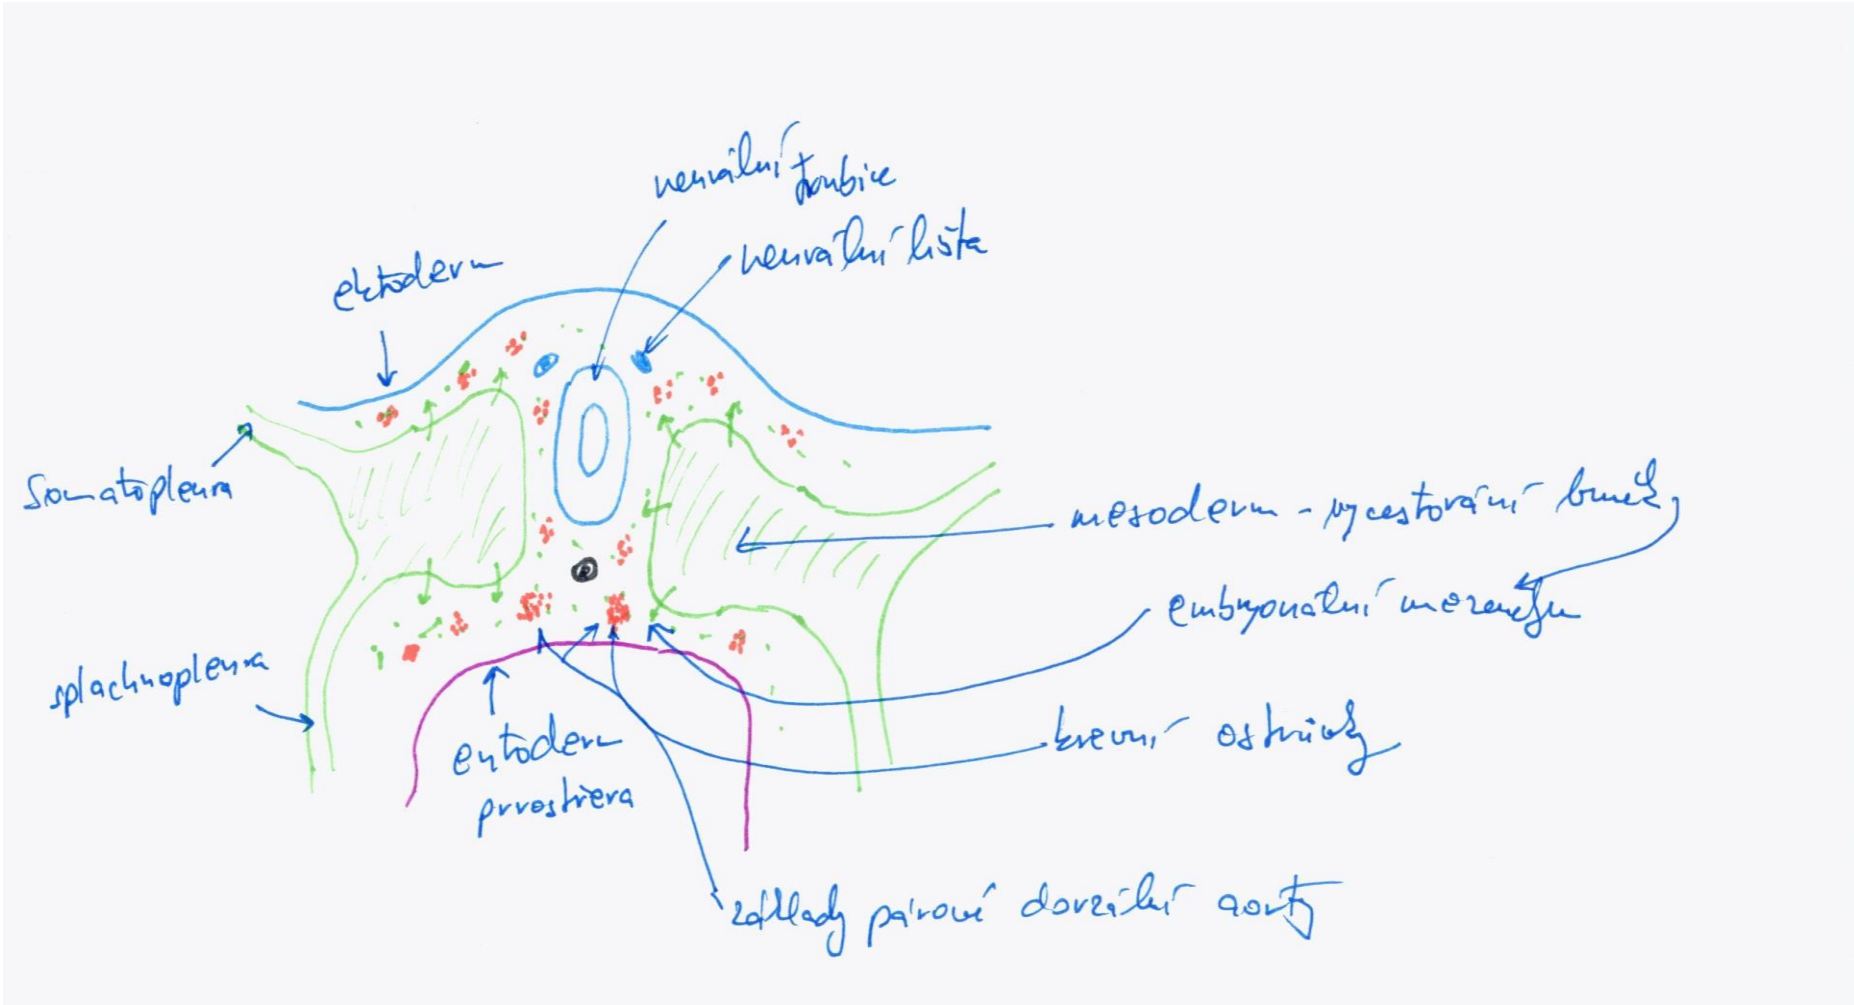 neurální
trubice
neurální lišta
ektoderm
Somatopleura
mesoderm - vycestování buněk
embryonální mezenchym
splachnopleura
krevní ostrůvky
entoderm
prvostřeva
základy párové dorzální aorty